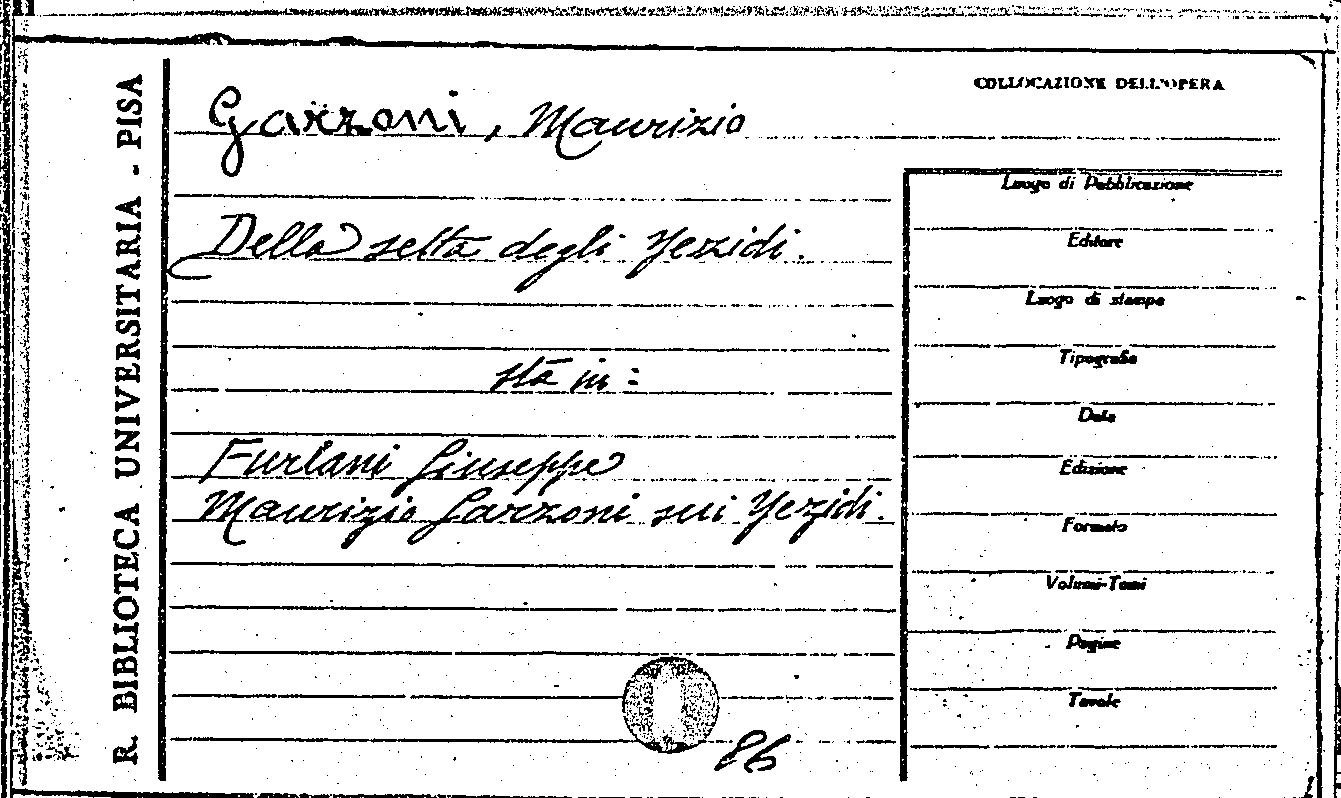 R. BIBLIOTECA UNIVERSITARIA - PISA
COLLOCAZIONE DELL'OPERA
Garzoni, Maurizio
Della setta degli Yezidi.
sta in:
Furlani Giuseppe
Maurizio Garzoni sui Yezidi.
86
Luogo di Pubblicazione
Editore
Luogo di stampa
Tipografia
Data
Edizione
Formato
Volumi-Tomi
Pagine
Tavole